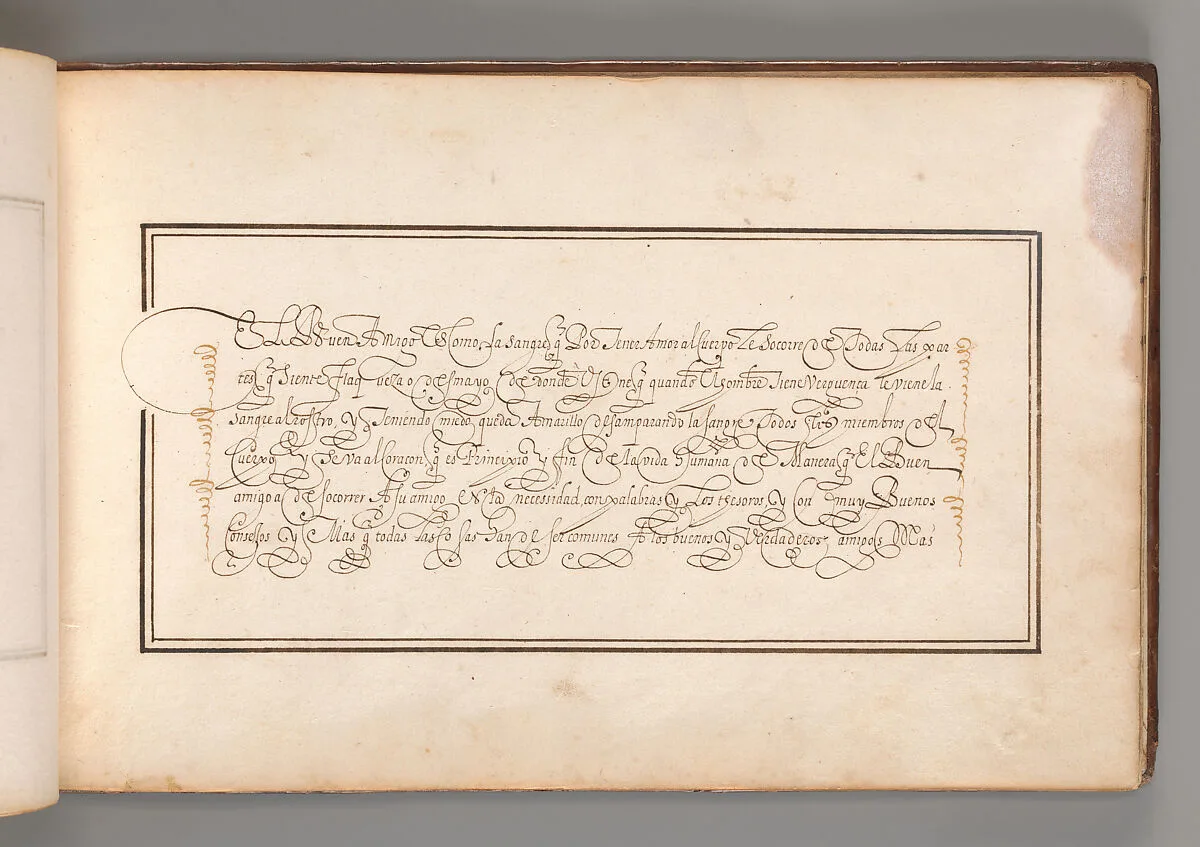 El Buen Amigo Es Como, la sangre, q̃ Por Tener Amor al Cuerpo Le Socorre de Todas Las par
tes q̃ Siente Flaqueza o desmayo, de donde Viene q̃ quando El hombre Tiene Verguença le viene la
sangre al rostro, y Teniendo miedo, queda Amarillo desamparando la sangre Todos los miembros del
Cuerpo y Se va al Coraçon, q̃ es Principio y fin de la vida humana de Manera q̃ El Buen
amigo a de socorrer A su amigo en la necessidad, con palabras y Los thesoros, y con muy Buenos
Consejos y Mas q̃ todas Las Cosas han de ser comunes A los buenos y Verdaderos, amigos Mas